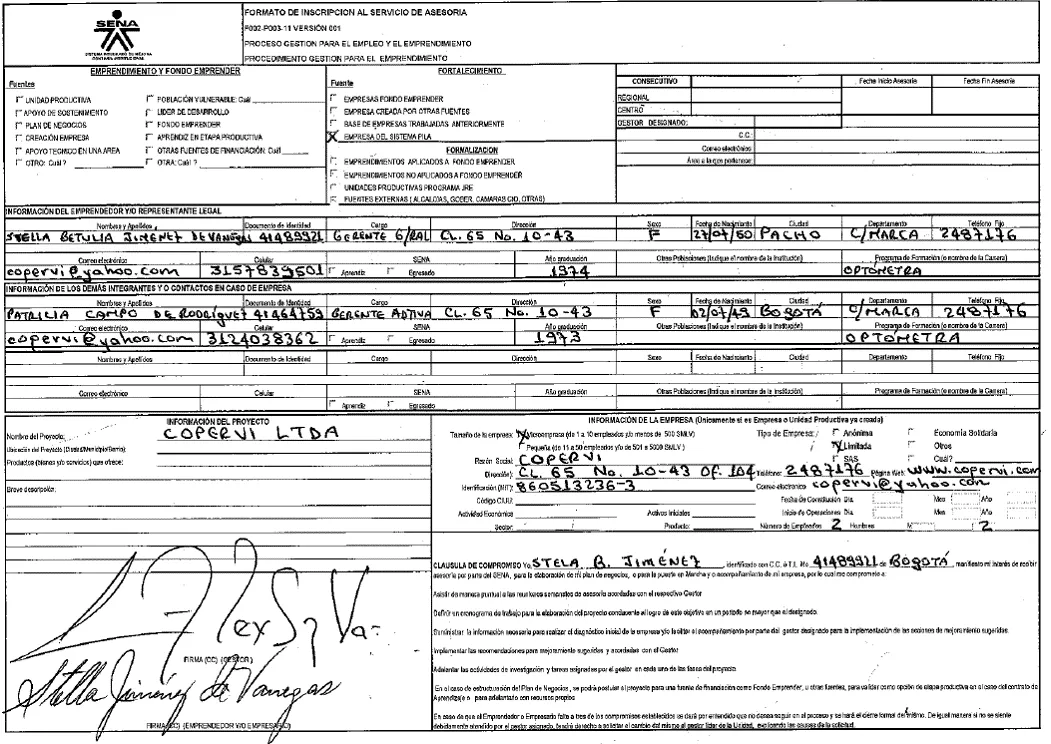 SENA
FORMATO DE INSCRIPCION AL SERVICIO DE ASESORIA
F002-P003-11 VERSIÓN 001
PROCESO GESTION PARA EL EMPLEO Y EL EMPRENDIMIENTO
PROCEDIMIENTO GESTION PARA EL EMPRENDIMIENTO
EMPRENDIMIENTO Y FONDO EMPRENDER
FORTALECIMIENTO
Fuentes
Fuente
CONSECUTIVO
Fecha Inicio Asesoría
Fecha Fin Asesoria
UNIDAD PRODUCTIVA
POBLACIÓN VULNERABLE: Cuál
EMPRESAS FONDO EMPRENDER
REGIONAL
APOYO DE SOSTENIMIENTO
LIDER DE DESARROLLO
EMPRESA CREADA POR OTRAS FUENTES
CENTRO
PLAN DE NEGOCIOS
FONDO EMPRENDER
BASE DE EMPRESAS TRABAJADAS ANTERIORMENTE
GESTOR DESIGNADO:
CREACIÓN EMPRESA
APRENDIZ EN ETAPA PRODUCTIVA
X EMPRESA DEL SISTEMA PILA
C.C:
APOYO TECNICO EN UNA AREA
OTRAS FUENTES DE FINANCIACIÓN: Cuál
FORMALIZACION
Correo electrónico
OTRO: Cuál ?
OTRA: Cuál ?
EMPRENDIMIENTOS APLICADOS A FONDO EMPRENDER
Área a la que pertenece:
EMPRENDIMIENTOS NO APLICADOS A FONDO EMPRENDER
UNIDADES PRODUCTIVAS PROGRAMA JRE
FUENTES EXTERNAS ( ALCALDIAS, GOBER, CAMARAS CIO, OTRAS)
INFORMACIÓN DEL EMPRENDEDOR Y/O REPRESENTANTE LEGAL
Nombres y Apellidos Documento de Identidad Cargo Dirección Sexo Fecha de Nacimiento Ciudad Departamento Teléfono Fijo
STELLA BETULIA JIMENEZ DE VANEGAS 41489921 GERENTE G/RAL CL. 65 No. 10-43 F 27/07/50 PACHO C/MARCA 2487176
Correo electrónico Celular SENA Año graduación Otras Poblaciones (Indique el nombre de la Institución) Programa de Formación (o nombre de la Carrera)
copervi@yahoo.com 3157839501 Aprendiz Egresado 1974 OPTOMETRA
INFORMACIÓN DE LOS DEMÁS INTEGRANTES Y O CONTACTOS EN CASO DE EMPRESA
Nombres y Apellidos Documento de Identidad Cargo Dirección Sexo Fecha de Nacimiento Ciudad Departamento Teléfono Fijo
PATRICIA CAMPO DE RODRÍGUEZ 41464759 GERENTE ADTIVA CL. 65 No. 10-43 F 02/07/49 BOGOTÁ C/MARCA 2487176
Correo electrónico Celular SENA Año graduación Otras Poblaciones (Indique el nombre de la Institución) Programa de Formación (o nombre de la Carrera)
copervi@yahoo.com 3124038362 Aprendiz Egresado 1973 OPTOMETRA
Nombres y Apellidos Documento de Identidad Cargo Dirección Sexo Fecha de Nacimiento Ciudad Departamento Teléfono Fijo
Correo electrónico Celular SENA Año graduación Otras Poblaciones (Indique el nombre de la Institución) Programa de Formación (o nombre de la Carrera)
Aprendiz Egresado
INFORMACIÓN DEL PROYECTO
Nombre del Proyecto: COPERVI LTDA
Ubicación del Proyecto (Ciudad/Municipio/Barrio):
Productos (bienes y/o servicios) que ofrece:
Breve descripción:
INFORMACIÓN DE LA EMPRESA (Únicamente si es Empresa o Unidad Productiva ya creada)
Tamaño de la empresa: X Microempresa (de 1 a 10 empleados y/o menos de 500 SMLV) Tipo de Empresa: Anónima Economía Solidaria
Pequeña (de 11 a 50 empleados y/o de 501 a 5000 SMLV) X Limitada Otros
Razón Social: COPERVI SAS Cuál?
Dirección: CL. 65 No. 10-43 OF. 104 Teléfono: 2487176 Página Web: www.copervi.com
Identificación (NIT): 860513236-3 Correo electrónico copervi@yahoo.com
Código CIUU: Fecha de Constitución Dia Mes Año
Actividad Económica Activos Iniciales Inicio de Operaciones Dia Mes Año
Sector: Producto: Número de Empleados 2 Hombres M 2
CLAUSULA DE COMPROMISO Yo, STELA B. JIMÉNEZ, identificado con C.C. ó T.I. No. 41489921 de BOGOTÁ, manifiesto mi interés de recibir
asesoría por parte del SENA, para la elaboración de mi plan de negocios, o para la puesta en Marcha y o acompañamiento de mi empresa, por lo cual me comprometo a:
Asistir de manera puntual a las reuniones semanales de asesoría acordadas con el respectivo Gestor
Definir un cronograma de trabajo para la elaboración del proyecto conducente al logro de este objetivo en un periodo no mayor que el designado.
Suministrar la información necesaria para realizar el diagnóstico inicial de la empresa y/o facilitar el acompañamiento por parte del gestor designado para la implementación de las acciones de mejoramiento sugeridas.
Implementar las recomendaciones para mejoramiento sugeridas y acordadas con el Gestor
Adelantar las actividades de investigación y tareas asignadas por el gestor en cada uno de las fases del proyecto
En el caso de estructuración del Plan de Negocios, se podrá postular el proyecto para una fuente de financiación como Fondo Emprender, u otras fuentes, para validar como opción de etapa productiva en el caso del contrato de
Aprendizaje o para adelantarlo con recursos propios
En caso de que el Emprendedor o Empresario falte a tres de los compromisos establecidos se dará por entendido que no desea seguir en el proceso y se hará el cierre formal del mismo. De igual manera si no se siente
debidamente atendido por el gestor asignado, tendrá derecho a solicitar el cambio del mismo al gestor líder de la Unidad, explicando las causas de la solicitud.
FIRMA (CC) (GESTOR)
Stella Jiménez de Vanegas
FIRMA (CC) (EMPRENDEDOR Y/O EMPRESARIO)